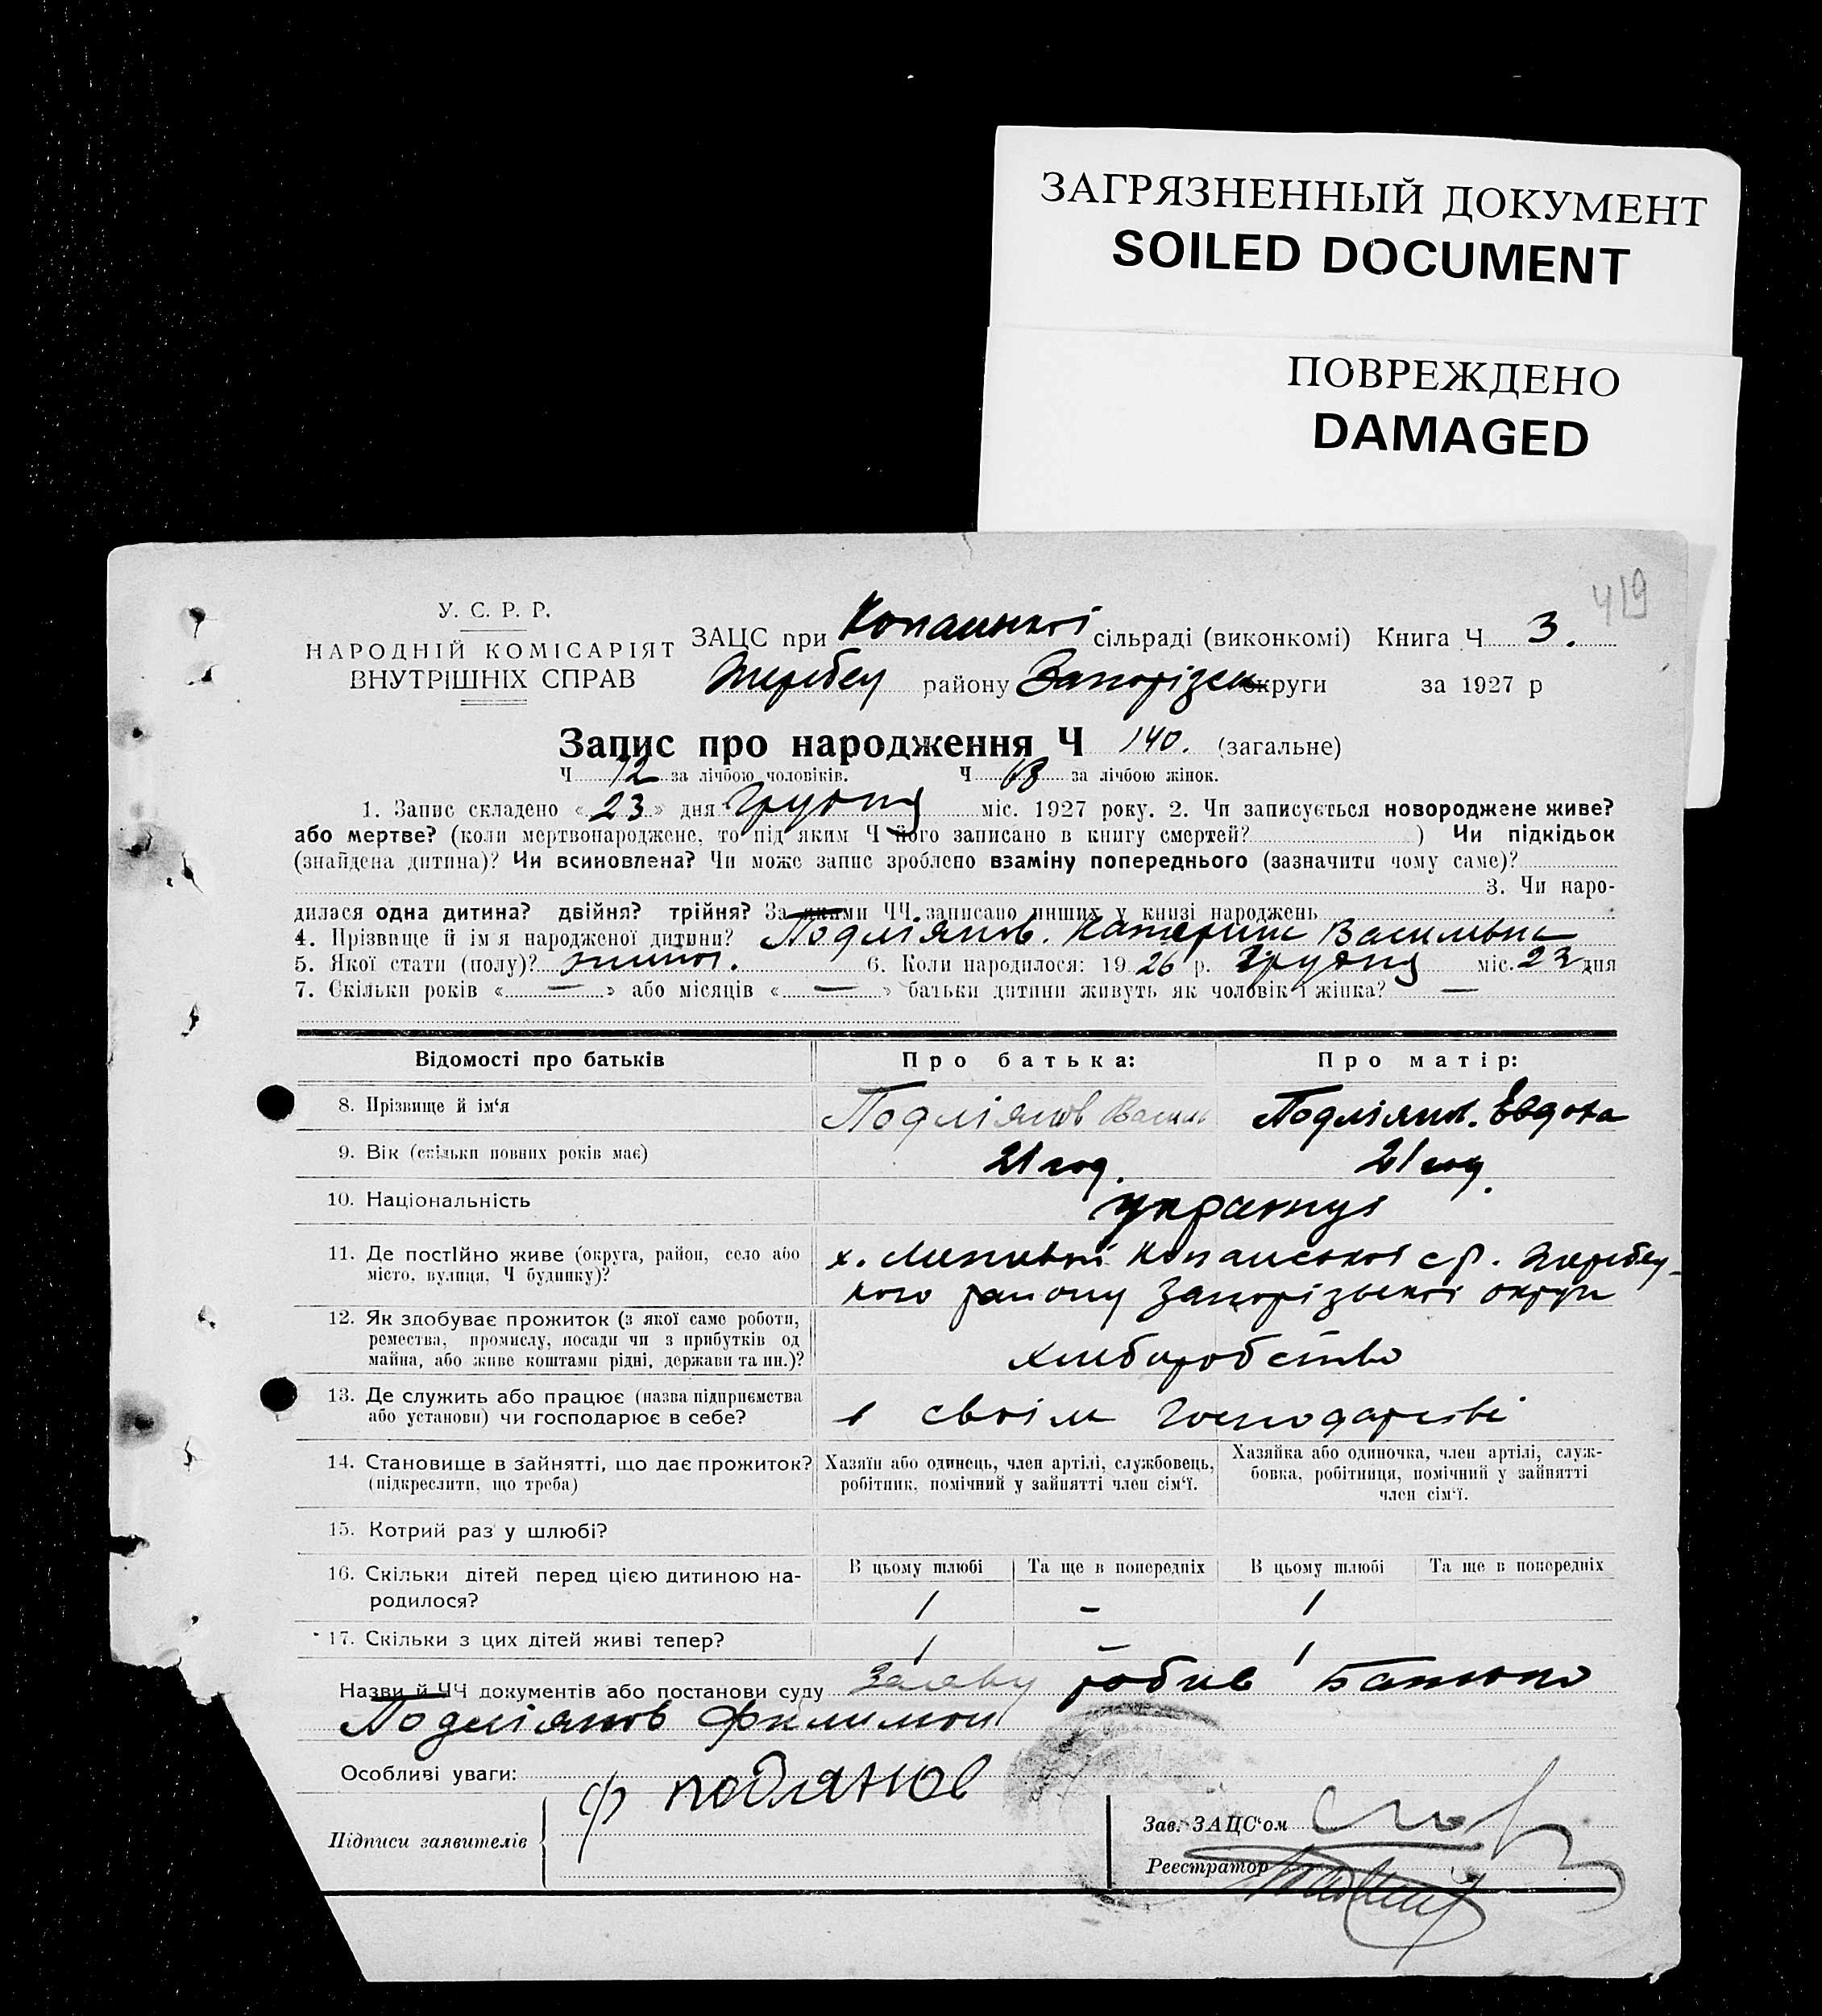 ЗАГРЯЗНЕННЫЙ ДОКУМЕНТ
SOILED DOCUMENT
ПОВРЕЖДЕНО
DAMAGED
419
У. С. Р. Р.
НАРОДНІЙ КОМІСАРІЯТ
ВНУТРІШНІХ СПРАВ
ЗАЦС при сільраді (виконкомі) Книга Ч 3.
Жеребец району Запорізьк округи за 1927 р
Запис про народження Ч 140. (загальне)
Ч 72 за лічбою чоловіків. Ч 68 за лічбою жінок.
1. Запис складено «23» дня Грудня міс. 1927 року. 2. Чи записується новороджене живе?
або мертве? (коли мертвонароджене, то під яким Ч його записано в книгу смертей? ) Чи підкідьок
(знайдена дитина)? Чи всиновлена? Чи може запис зроблено взаміну попереднього (зазначити чому саме)?
3. Чи наро-
дилася одна дитина? двійня? трійня? За якими ЧЧ записано инших у книзі народжень
4. Прізвище й ім'я народженої дитини? Подліянов. Катерина Василівна
5. Якої стати (полу)? жіночої. 6. Коли народилося: 1926 р. Грудня міс. 23 дня
7. Скільки років «—» або місяців «—» батьки дитини живуть як чоловік і жінка? —
Відомості про батьків Про батька: Про матір:
8. Прізвище й ім'я Подліянов Василь Подліянов. Евдока
9. Вік (скільки повних років має) 21 год. 21 год.
10. Національність українці
11. Де постійно живе (округа, район, село або
місто, вулиця, Ч будинку)?
х. Копанської ср. Жеребец-
кого району Запорізької округи
12. Як здобуває прожиток (з якої саме роботи,
ремества, промислу, посади чи з прибутків од
майна, або живе коштами рідні, держави та ин.)?
хлиборобство
13. Де служить або працює (назва підприємства
або установи) чи господарює в себе?
в своім господарстві
14. Становище в зайнятті, що дає прожиток?
(підкреслити, що треба)
Хазяїн або одинець, член артілі, службовець,
робітник, помічний у зайнятті член сім'ї.
Хазяйка або одиночка, член артілі, служ-
бовка, робітниця, помічний у зайнятті
член сім'ї.
15. Котрий раз у шлюбі?
16. Скільки дітей перед цією дитиною на-
родилося?
В цьому шлюбі Та ще в попередніх В цьому шлюбі Та ще в попередніх
1 – 1
17. Скільки з цих дітей живі тепер? 1 – 1
Назви й ЧЧ документів або постанови суду Заяву робив Батько
Подліянов Филимон
Особливі уваги:
Підписи заявителів ф подлянов
Зав. ЗАЦС'ом
Реестратор